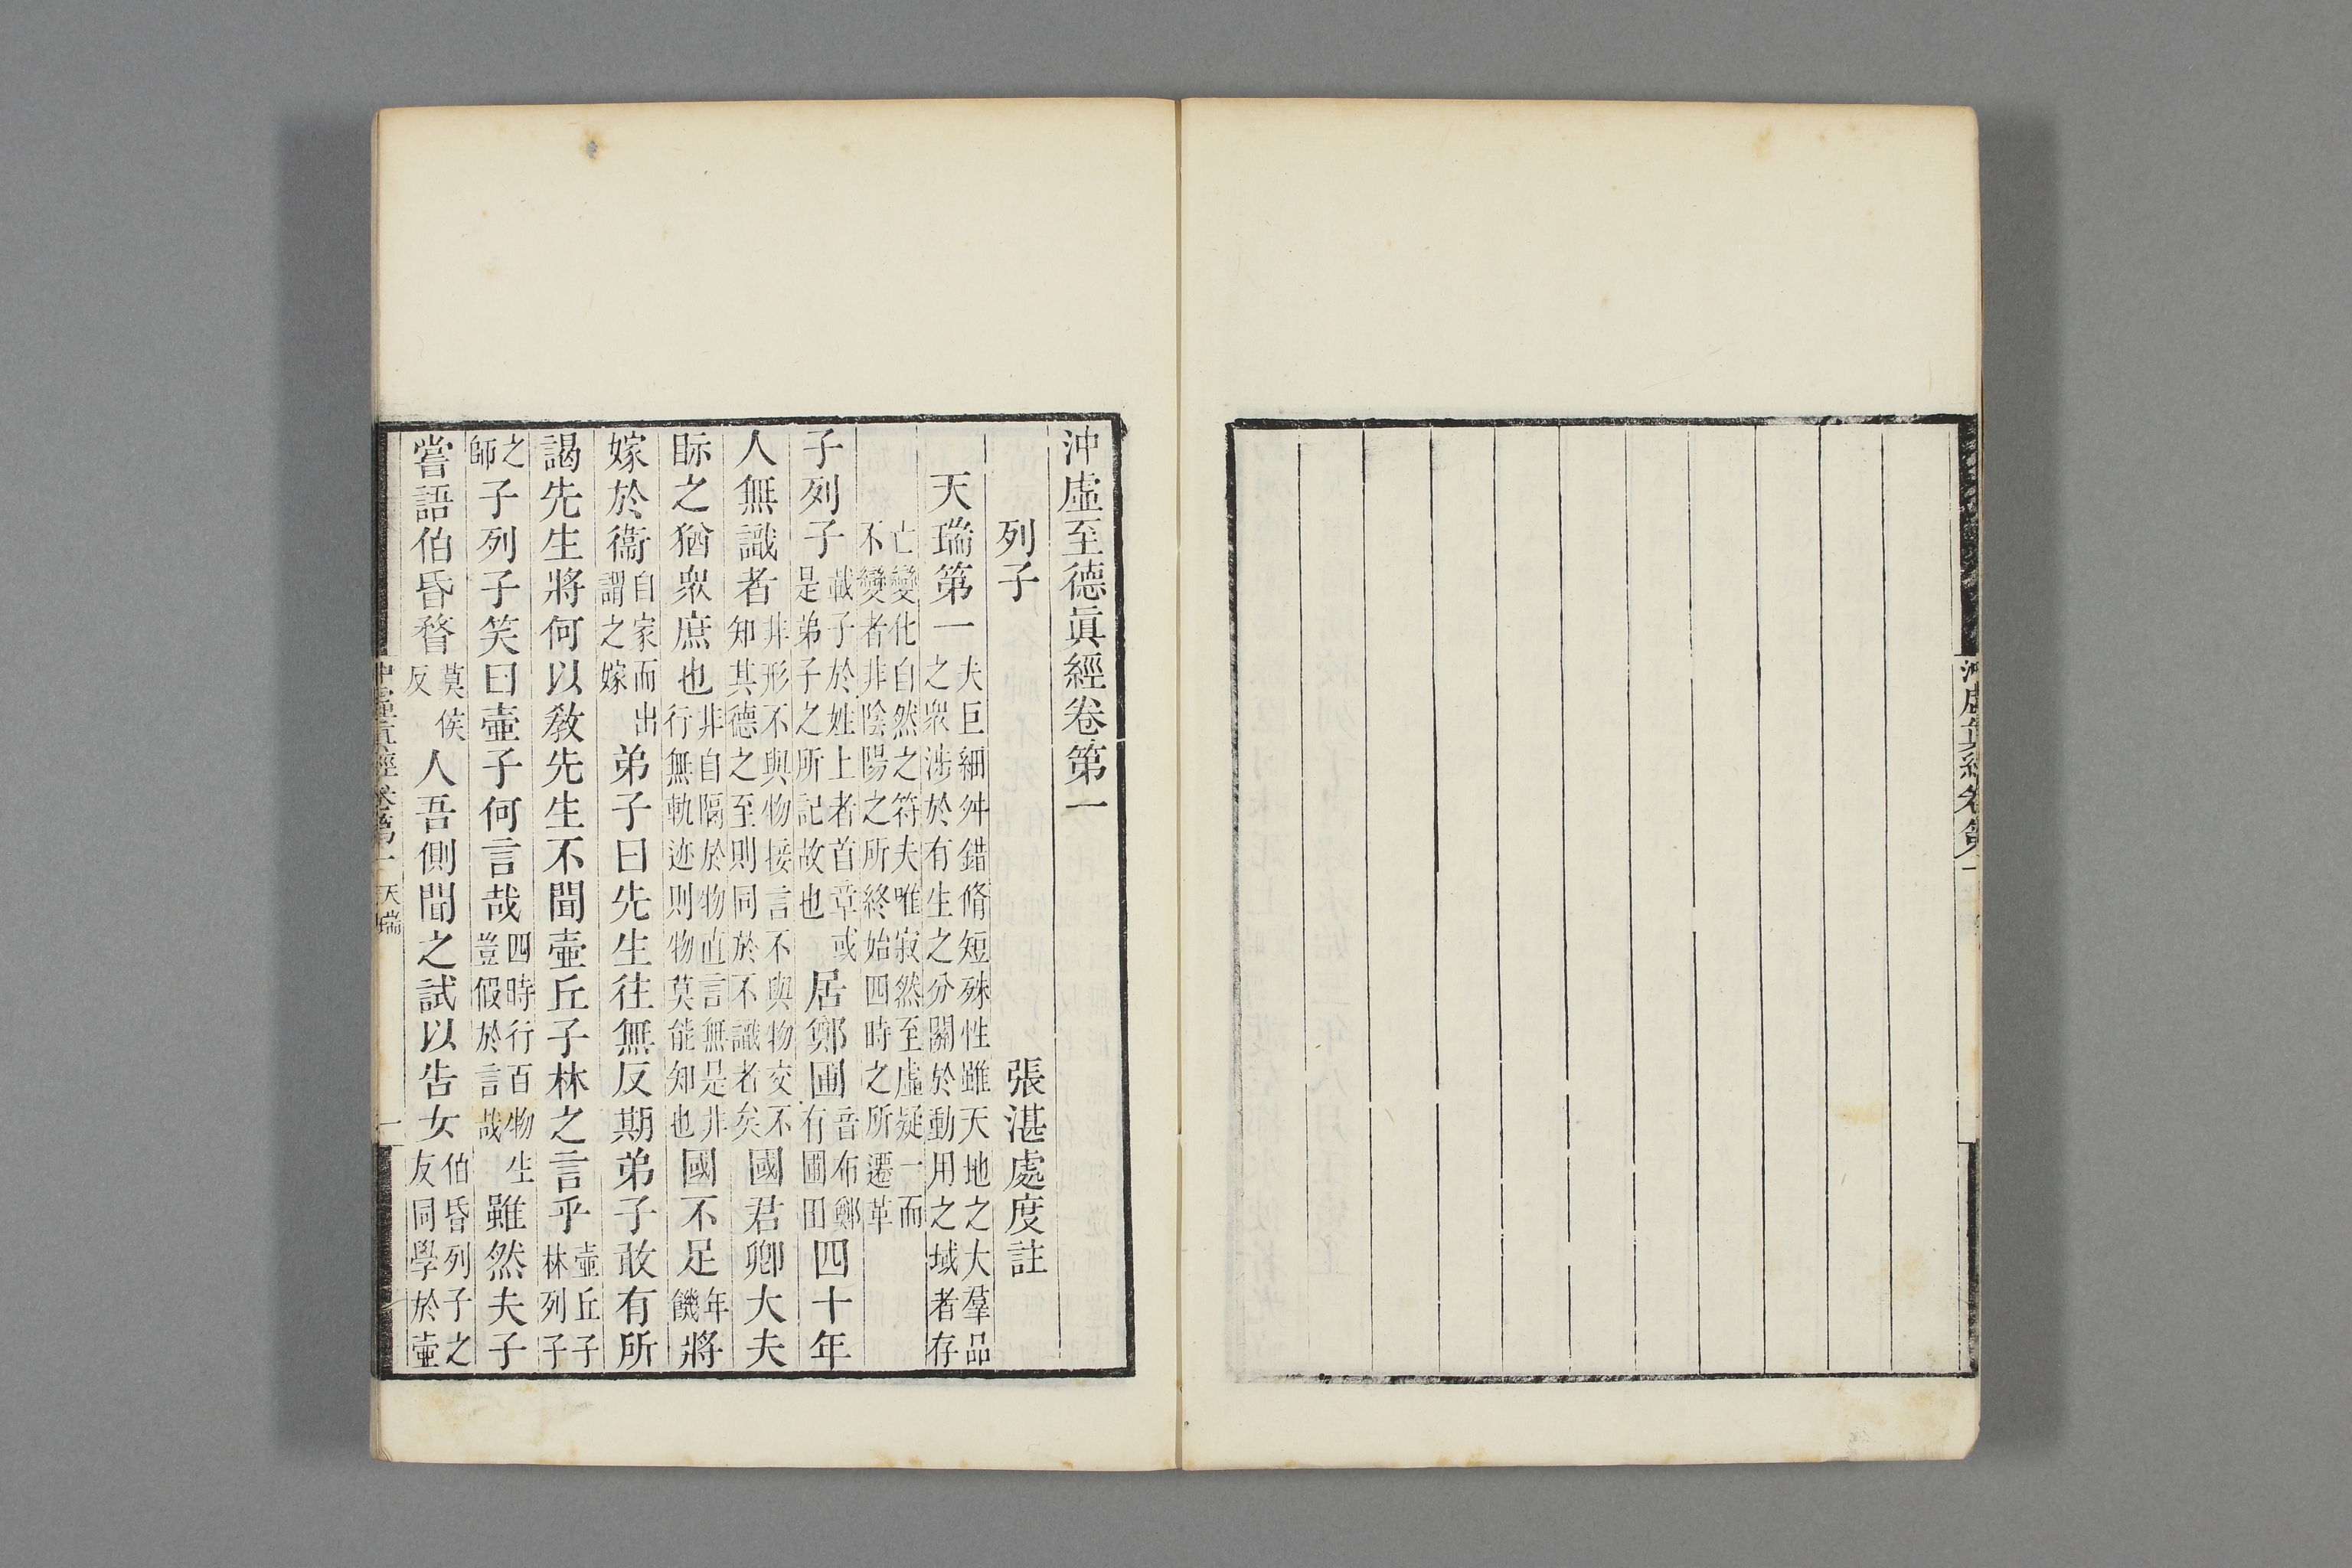 沖虛眞經卷第一
沖虛至德眞經卷第一
列子 張湛處度註
天瑞第一夫巨細舛錯脩短殊性雖天地之大羣品之衆涉於有生之分關於動用之域者存
亡變化自然之符夫唯寂然至虛疑一而不變者非陰陽之所終始四時之所遷革
子列子載子於姓上者首章或是弟子之所記故也居鄭圃音布鄭有圃田四十年
人無識者非形不與物接言不與物交不知其德之至則同於不識者矣國君卿大夫
眎之猶衆庶也非自隔於物直言無是非行無軌迹則物莫能知也國不足年饑將
嫁於衞自家而出謂之嫁弟子曰先生往無反期弟子敢有所
謁先生將何以敎先生不聞壷丘子林之言乎壷丘子林列子
之師子列子笑曰壷子何言哉四時行百物生豈假於言哉雖然夫子
嘗語伯昏瞀莫侯反人吾側聞之試以告女伯昏列子之友同學於壷
沖虛眞經卷第一 天瑞 一